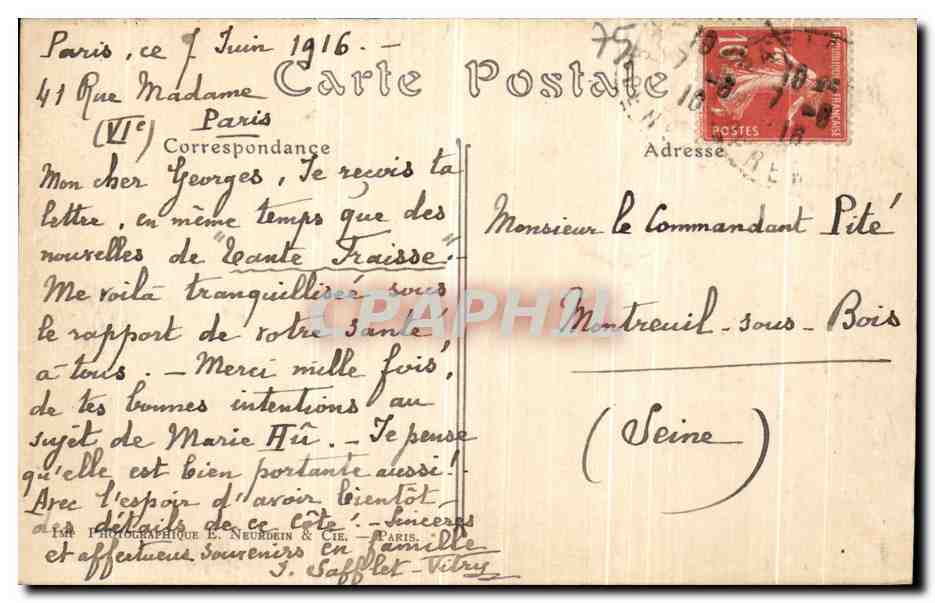 Paris, ce 7 Juin 1916. -
41 Rue Madame
(VIe) Paris
75
Carte Postale
Correspondance
Mon cher Georges, Je reçois ta
lettre, en même temps que des
nouvelles de "Tante Fraisse".-
Me voilà tranquillisée sous
le rapport de votre santé
à tous. - Merci mille fois,
de tes bonnes intentions au
sujet de Marie Hû. - Je pense
qu'elle est bien portante aussi!
Avec l'espoir d'avoir bientôt
des détails de ce côté! - Sincères
et affectueux souvenirs en famille
J. Safflet-Vitry
IMP PHOTOGRAPHIQUE E. NEURDEIN & CIE. - PARIS.
Adresse
Monsieur le Commandant Pité
Montreuil-sous-Bois
(Seine)
10
POSTES
REPUBLIQUE FRANÇAISE
10
7 -6
16
CPAPHIL